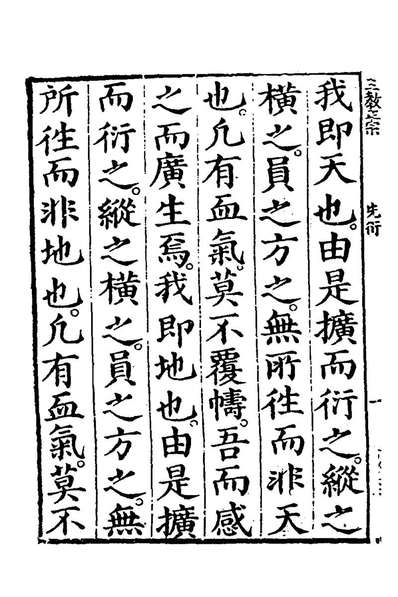 三教正宗 先衍 一
我即天也。由是擴而衍之。縱之
橫之。員之方之。無所徃而非天
也。凢有血氣。莫不覆幬。吾而感
之而廣生焉。我即地也。由是擴
而衍之。縱之橫之。員之方之。無
所徃而非地也。凢有血氣。莫不